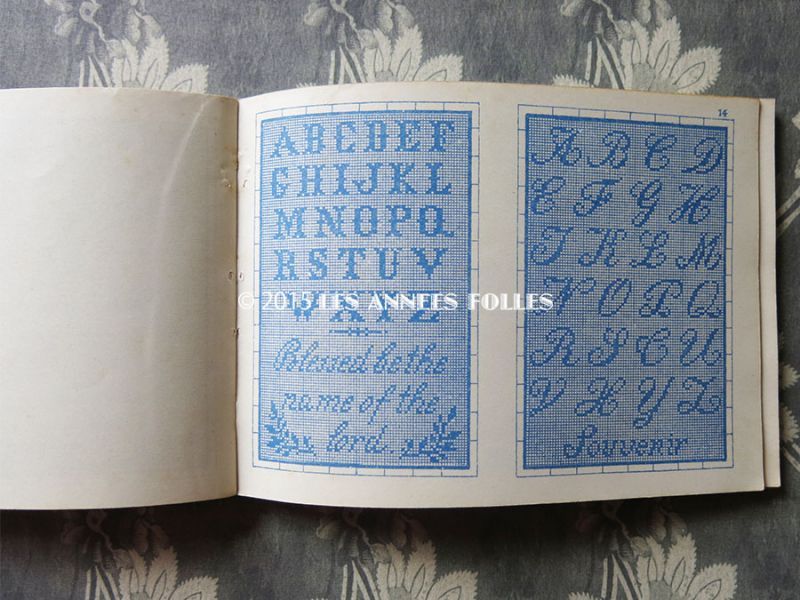 14
ABCDEF
GHIJKL
MNOPQ
RSTUV
WXYZ
Blessed be the
name of the
lord.
A B C D
E F G H
J K L M
N O P Q
R S T U
V X Y Z
Souvenir
© 2015 LES ANNEES FOLLES